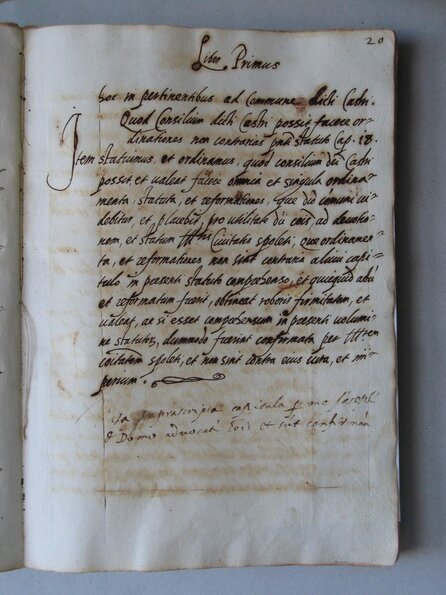 20
Liber Primus
hoc in pertinentibus ad Commune dicti Castri.
Quod Consilium dicti Castri possit facere or-
dinationes non contrarias pnti statuto Cap. 18.
Item statuimus, et ordinamus, quod consilium dci Castri
possit, et valeat facere omnia et singula ordina-
menta, statuta, et reformationes, que dio comuni vi-
debitur, et placebit, pro utilitate di cois, ad devotio-
nem, et statum Illtris Civitatis spoleti, que ordinamen-
ta, et reformationes non sint contraria alicui capi-
tulo in presenti statuto comprehenso, et quicquid
et reformatum fuerit, obtineat roboris firmitatem, et
valeat, ac si esset comprehensum in presenti volumi-
ne statutis, dummodo fuerint confirmata per Illtrem
civitatem spoleti, et non sint contra eius iura, et im-
perium.
capitula me
Domo et sint